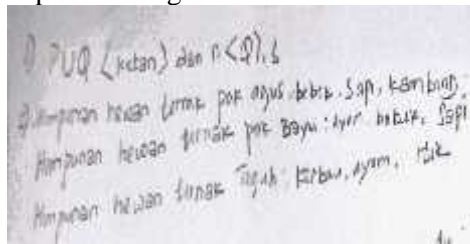 P∪Q (ketan) dan n(Q).s
Himpunan hewan ternak pak agus: bebek, sapi, kambing,
Himpunan hewan ternak pak Bayu: ayam bebek, sapi
Himpunan hewan ternak Teguh: kerbau, ayam,